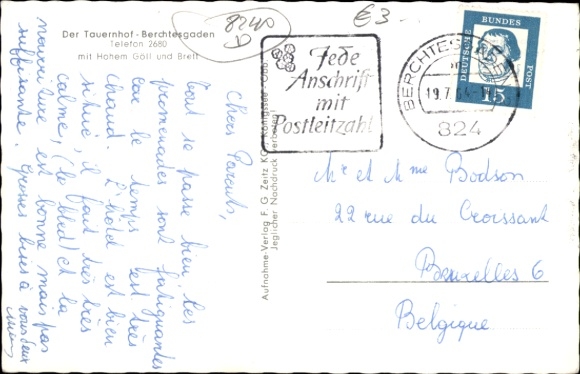 Der Tauernhof - Berchtesgaden
Telefon 2680
mit Hohem Göll und Brett
8240
D
€3-
Jede
Anschrift
mit
Postleitzahl
BERCHTESG
19.7.64-
824
DEUTSCHE BUNDES POST
15
Aufnahme-Verlag F. G. Zeitz KG, Königssee
Jeglicher Nachdruck verboten!
Chers Parents,
Tout se passe bien les
promenades sont fatiguantes
car le temps est très
chaud. L'hôtel est bien
situé, il fait très très
calme, (le bled) et la
nourriture est bonne mais pas
suffisante. Grosses bises à vous deux
Mr et Mme Bodson
22 rue du Croissant
Bruxelles 6
Belgique